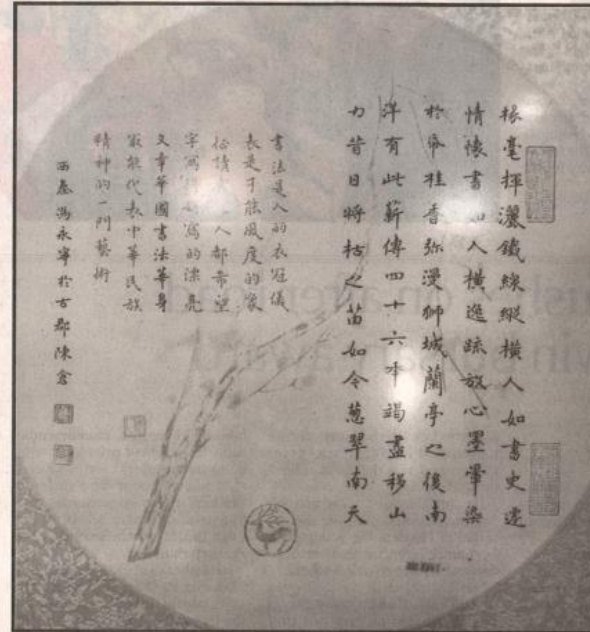 毫揮灑鐵線縱橫人如書史遷
情懷書如人橫逸疏放心墨暈染
於帋桂香弥漫獅城蘭亭之後南
洋有此薪傳四十六年竭盡移山
力昔日將枯之苗如今蔥翠南天
書法是人的衣冠儀
表是才能風度的象
人都希望
字寫寫的漂亮
文章華國書法華身
最能代表中華民族
精神的一門藝術
西秦馮永寧於古郡陳倉